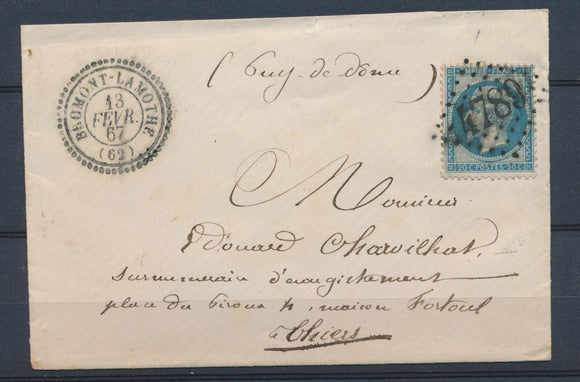 BROMONT-LAMOTHE
13
FEVR.
67
(62)
(Puy-de-dôme)
EMPIRE FRANC
4789
20 C POSTES 20 C
Monsieur
Edouard Charvilhat,
surnumeraire d'enregistrement
place du Piroux 4, maison Fortoul
à Thiers